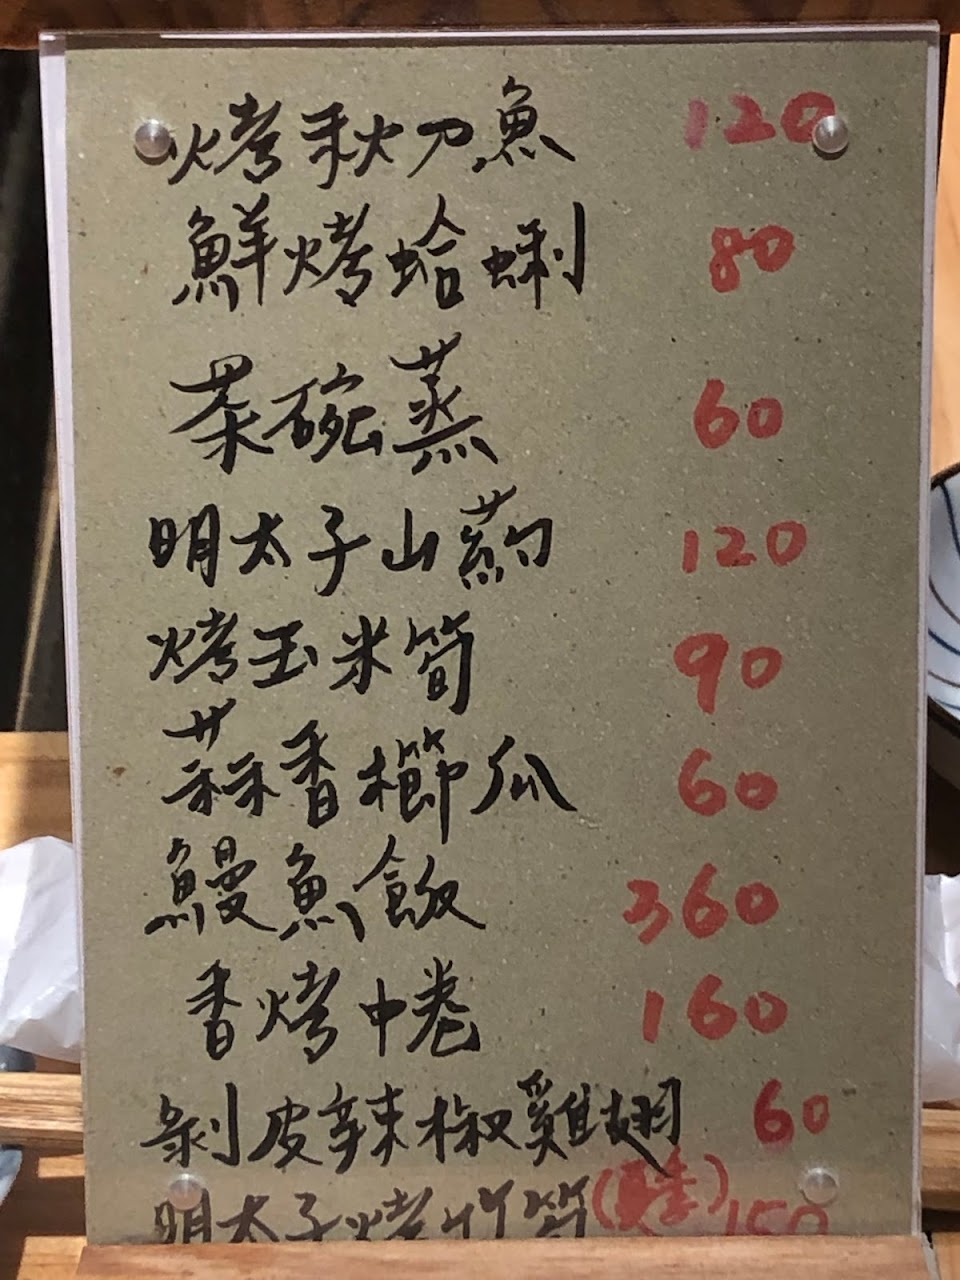 烤秋刀魚 120
鮮烤蛤蜊 80
茶碗蒸 60
明太子山藥 120
烤玉米筍 90
蒜香櫛瓜 60
鰻魚飯 360
香烤中卷 160
剝皮辣椒雞翅 60
明太子烤竹筍(夏季) 150